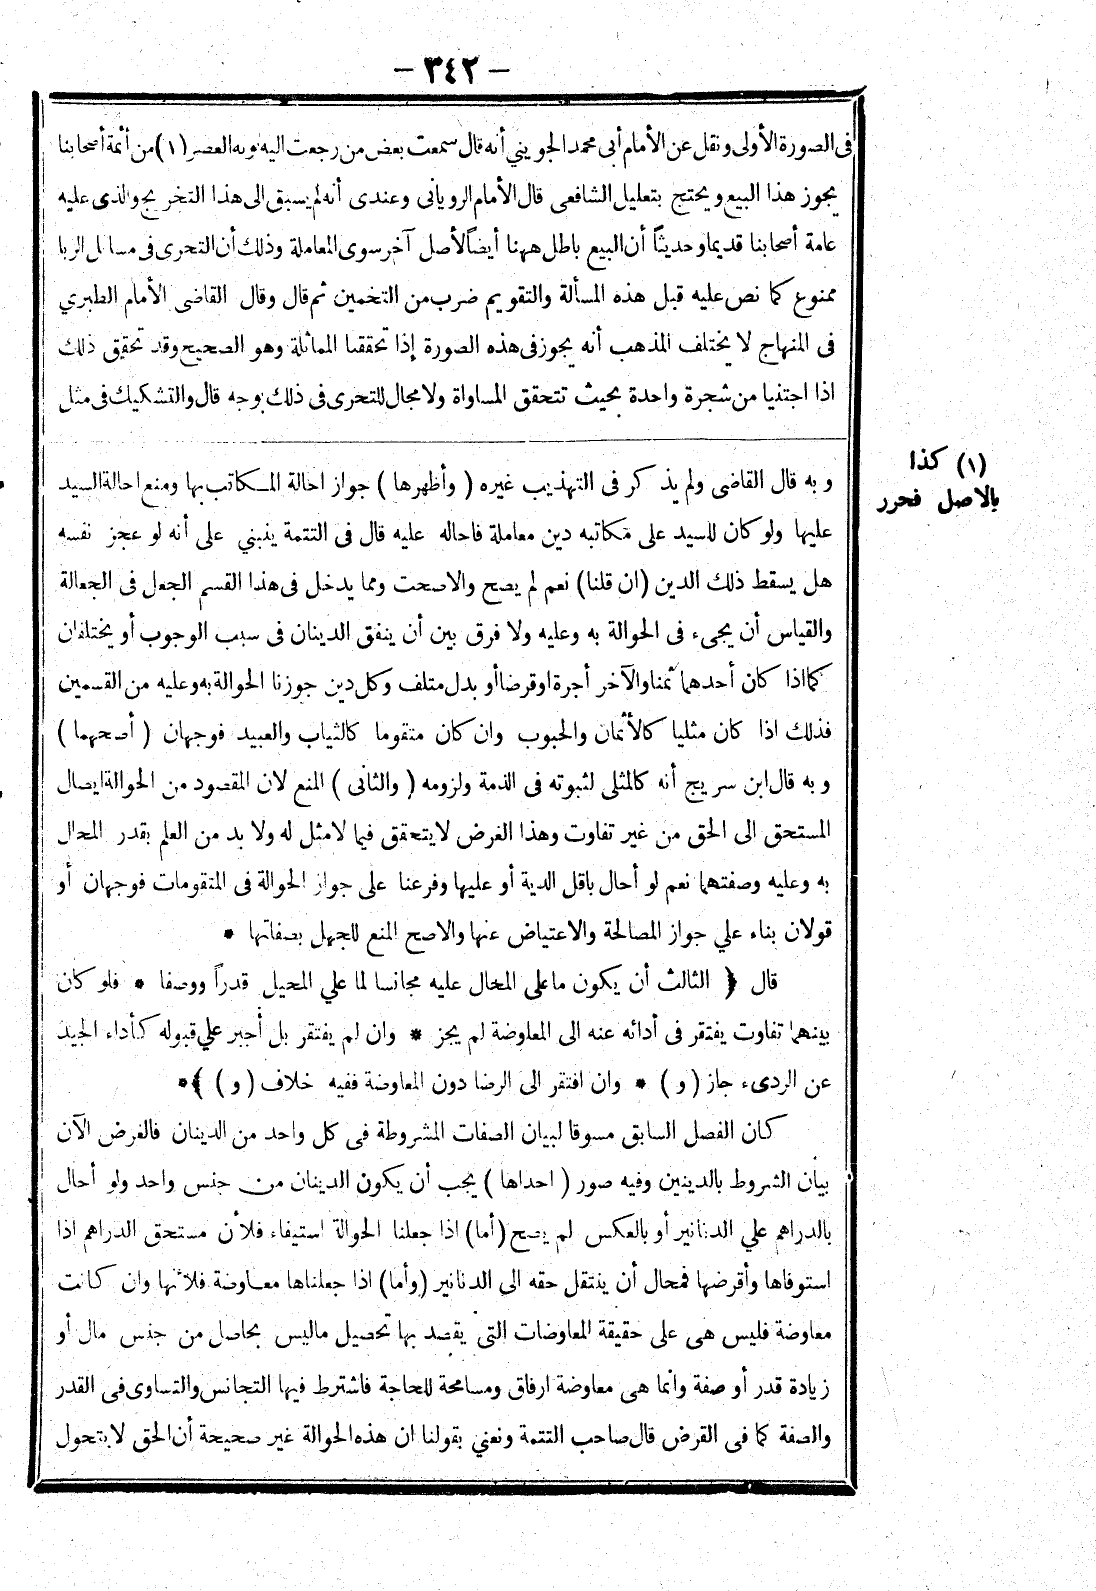 - ٣٤٢ -
فى الصورة الأولى ونقل عن الأمام أبى محمد الجوينى أنه قال سمعت بعض من رجعت اليه نوبة العصر (١) من أئمة أصحابنا
يجوز هذا البيع ويحتج بتعليل الشافعى قال الأمام الرويانى وعندى أنه لم يسبق الى هذا التخريج والذى عليه
عامة أصحابنا قديما وحديثاً أن البيع باطل ههنا أيضاً لأصل آخر سوى المعاملة وذلك أن التحرى فى مسائل الربا
ممنوع كما نص عليه قبل هذه المسألة والتقويم ضرب من التخمين ثم قال وقال القاضى الأمام الطبري
فى المنهاج لا يختلف المذهب أنه يجوز فى هذه الصورة إذا تحققنا المماثلة وهو الصحيح وقد تحقق ذلك
اذا اجتنيا من شجرة واحدة بحيث تتحقق المساواة ولا مجال للتحرى فى ذلك بوجه قال والتشكيك فى مثل
(١) كذا
بالاصل فحرر
وبه قال القاضى ولم يذكر فى التهذيب غيره ( وأظهرها ) جواز احالة المكاتب بها ومنع احالة السيد
عليها ولو كان للسيد على مكاتبه دين معاملة فاحاله عليه قال فى التتمة ينبني على أنه لو عجز نفسه
هل يسقط ذلك الدين (ان قلنا) نعم لم يصح والاصحت ومما يدخل فى هذا القسم الجعل فى الجعالة
والقياس أن يجىء فى الحوالة به وعليه ولا فرق بين أن يتفق الدينان فى سبب الوجوب أو يختلفان
كما اذا كان أحدهما ثمنا والآخر أجرة اوقرضا أو بدل متلف وكل دين جوزنا الحوالة به وعليه من القسمين
فذلك اذا كان مثليا كالأثمان والحبوب وان كان متقوما كالثياب والعبيد فوجهان ( أصحهما )
وبه قال ابن سريج أنه كالمثلى لثبوته فى الذمة ولزومه ( والثانى ) المنع لان المقصود من الحوالة ايصال
المستحق الى الحق من غير تفاوت وهذا الغرض لا يتحقق فيما لا مثل له ولا بد من العلم بقدر المحال
به وعليه وصفتهما نعم لو أحال باقل الدية أو عليها وفرعنا على جواز الحوالة فى المتقومات فوجهان أو
قولان بناء علي جواز المصالحة والاعتياض عنها والاصح المنع للجهل بصفاتها *
قال ﴿ الثالث أن يكون ما على المحال عليه مجانسا لما علي المحيل قدراً ووصفا * فلو كان
بينهما تفاوت يفتقر فى أدائه عنه الى المعاوضة لم يجز * وان لم يفتقر بل أجبر علي قبوله كأداء الجيد
عن الردىء جاز ( و ) * وان افتقر الى الرضا دون المعاوضة ففيه خلاف ( و ) ﴾*
كان الفصل السابق مسوقا لبيان الصفات المشروطة فى كل واحد من الدينان فالغرض الآن
بيان الشروط بالدينين وفيه صور ( احداها ) يجب أن يكون الدينان من جنس واحد ولو أحال
بالدراهم علي الدنانير أو بالعكس لم يصح (أما) اذا جعلنا الحوالة استيفاء فلأن مستحق الدراهم اذا
استوفاها وأقرضها فمحال أن ينتقل حقه الى الدنانير (وأما) اذا جعلناها معاوضة فلأنها وان كانت
معاوضة فليس هى على حقيقة المعاوضات التى يقصد بها تحصيل ماليس بحاصل من جنس مال أو
زيادة قدر أو صفة وانما هى معاوضة ارفاق ومسامحة للحاجة فاشترط فيها التجانس والتساوى فى القدر
والصفة كما فى القرض قال صاحب التتمة ونعني بقولنا ان هذه الحوالة غير صحيحة أن الحق لا يتحول